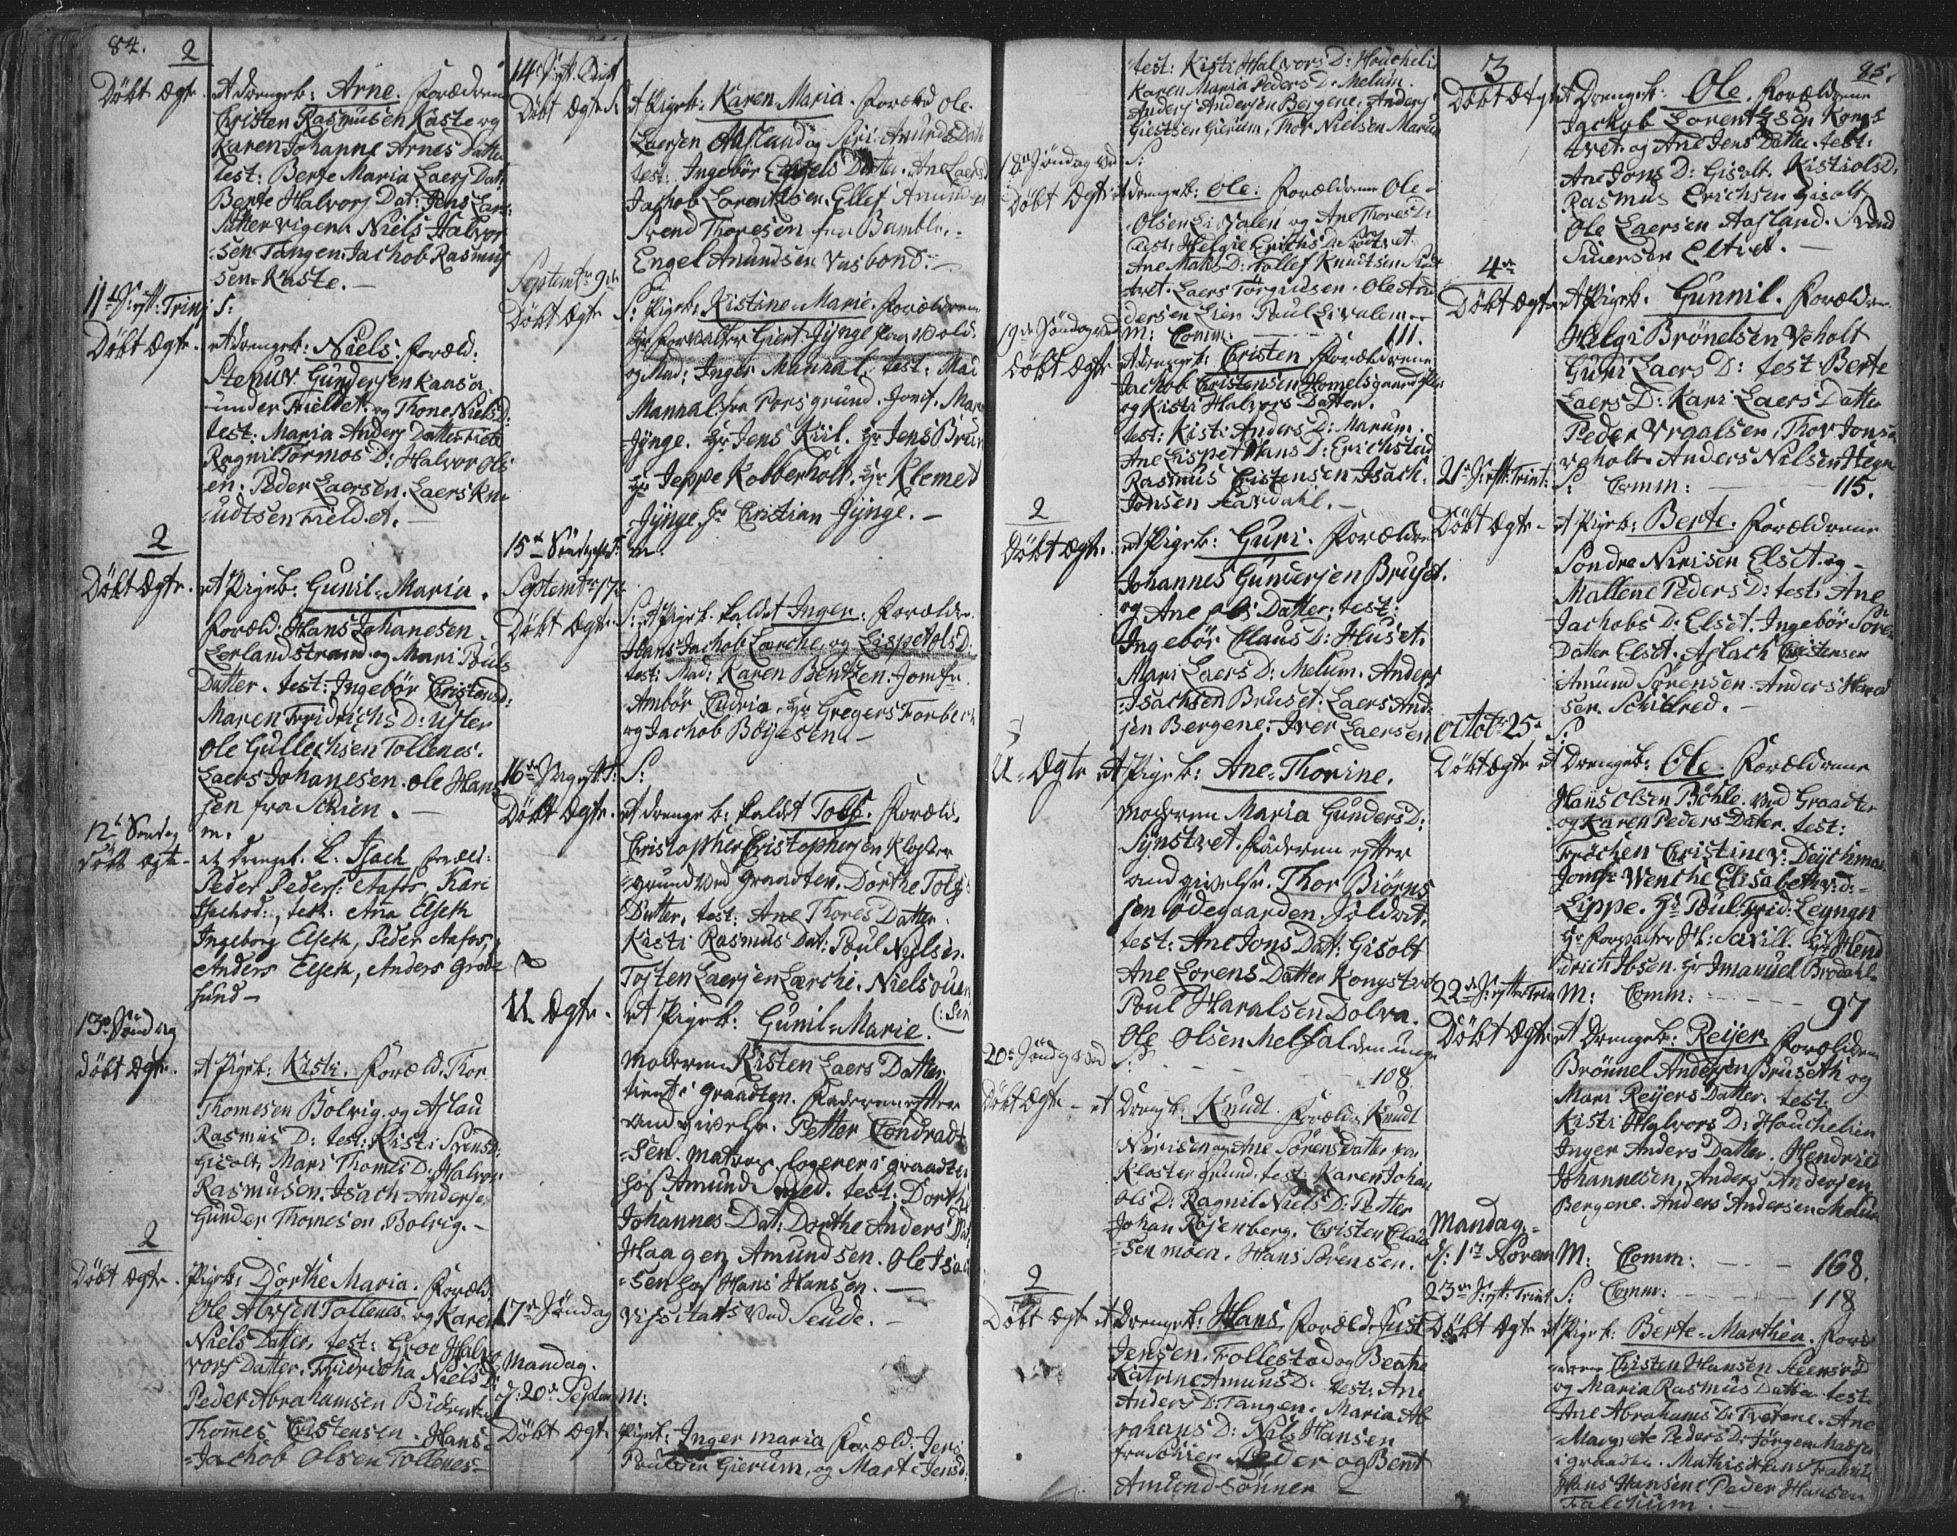 84.
2
Döbt Ægte. et drengeb: Arne. Forældrene
Cristen Rasmusen Kaste og
Karen Johanne Arnes Datter
test: Berte Maria Laers Datt
Berte Halvors Dat: Jens Lar-
Niels Halvor
sen Tangen. Jachob Rasmus
sen Kaste. —
11te S: eft: Trin: S:
Döbt Ægte. et drengeb: Niels. foræld:
Gundersen Kaasa
under Fieldet og Thone Niels D:
test: Maria Anders Datter
Ragnil Tormos D: Halvor Ols
en. Peder Laersen. Laers Kn
udtsen Fieldet. —
2
Döbt Ægte. et Pigeb: Gunil Maria.
Foræld: Hans Johanesen
Lerlandstrand og Mari Pouls
Datter. test: Ingebör Cristens D:
Maren Fridrichs D:
Ole Gullechsen Tollenes.
Laers Johanesen. Ole Hans
sen fra Schien. —
12te Söndag m.
Döbt ægte et Drengeb. k. Isach foræld:
Peder Peders: Aafos, Kari
test: Ana Elseth
Ingeborg Elseth, Peder Aafos,
Anders Elseth, Anders Grode
sund —
13de Söndag
Döbt Ægte. et Pigeb: Kisti. Foræld: Thor
Thomesen Bolvig og Aslau
Rasmus D: test: Kisti Svends D:
Gisolt. Mari Thomes D: Halvor
Rasmusen. Isach Andersen
Gunder Thomesen Bolvig. —
2
Döbt Ægte. Pigeb: Dorthe Maria. Foræld:
Ole Tollenes og Karen
Niels Datter. test: Groe Halv
vors Datter. Fridricha Niels D:
Peder Abrahamsen
Thomes Cristensen. Hans
Jachob Olsen Tollenes —
14de S: eft: Trinit
Döbt Ægte S: et Pigeb: Karen Maria. Foræld Ole
Laersen Aasland og Siri Amunds Datt
test: Ingebör Engels Datter. Ane Laers D
Jachob Lorentsen. Ellef Amundsen
Svend Thoresen fra Bamble.
Engel Amundsen Vusbond. —
Septemb: 9de
Döbt Ægte S: Pigeb: Kistine Marie. Forældrene
Hr Forvalter Giert Jÿnge fra Vold
og Mad: Inger Manhal. test: Mad
Manhal fra Porsgrund. Jomf. Mar
Jÿnge. Hr Jens Kiil. Hr Jens Brun
Hr Jeppe Kobberholt. Hr Klemet
Jÿnge. Hr Cristian Jÿnge. —
15de Söndag m.
Septemb: 17de
Döbt Ægte. S: et Pigeb. kaldet Inger. Forældre
Hans Jachob Larche og Lispet Ols D:
test: Mad: Karen Bentzen. Jomfr.
Ambör Hr Gregers
og Jachob Böyesen. —
16de S: S:
Döbt Ægte. et drengeb: kaldet Foræld:
Cristopher Cristophersen Kloster
grund ved Graadten. Dorthe
Datter, test: Ane Thores Datter.
Kisti Rasmus Dat: Poul Nielsen
Tosten Laersen Larchi. Niels
U Ægte. et Pigeb: Gunil Marie.
moderen Kisten Laers Datter
tient i Graadten. Faderen efter
and givelse. Petter Condradt
sen. matros. logerer i graadten
hos Amund Smed. test: Dorthe
Johannes Dat: Dorthe Anders Dat
Haagen Amundsen. Ole Isac
sen hos Hans Hansen. —
17de Söndag Visitats ved Seude. —
Mandag.
d: 20de Septem M:
Döbt Ægte. Pigeb: Inger maria Foræld: Jens
Poulsen Gierum, og Marte Jens D:
test: Kisti Halvors D: Houchelie
Karen Maria Peders D: Melum.
Anders Andersen Bergene. Anders
Giertsen Gierum. Thor Nielsen Marum
18de Söndag ved S:
Döbt Ægte et drengeb: Ole: Forældrene Ole
Olsen Livalen og Ane Thores D:
test: Helgie Erichs D:
Ane Mahs D: Tollef Knudtsen
Laers Torgiusen. Ole And
dersen Lien. Poul Livalen —
19de Söndag ved M: Comm: 111.
Döbt Ægte et drengeb: Cristen. Forældrene
Jachob Cristensen
og Kisti Halvors Datter.
test: Kisti Anders D: Marum.
Ane Lispet Hans D: Erichstad
Rasmus Cristensen. Isach.
Jonsen —
2
Döbt Ægte. et Pigeb: Guri. Forældre
Johannes Gundersen Bruset.
og Ane Ols Datter: test:
Ingebör Claus D: Huset.
Mari Laers D: Melum. Anders
Isachsen Bruset. Laers And
sen Bergene. Iver Laersen
U Ægte et Pigeb: Ane Thorine.
moderen Maria Gunders D:
faderen efter
and givelse. Thor Biörns
sen ödegaarden
test: Ane Jons Dat: Gisolt
Ane Lorens Datter Kongstvet
Poul Haralsen Dolva.
Ole Olsen Melfal den unge
20de Söndag ved S: 108.
Döbt Ægte — et Drengb: Knudt. Foræld: Knudt
Nirisen og Ane Sörens Datter fra
Klostergrund. test: Karen Johan
Ols D: Ragnil Niels D: Petter
Johan Rosenberg. Cristen Claus
sen moen. Hans Sörensen.
2
Döbt Ægte et Drengeb: Hans. Foræld: Just
Jensen. Follestad og Benthe
Katrine Amuns D. test: Ane
Anders D: Tangen. Maria Ab
rahams D: Nils Hansen
fra Schien. Peder og Bent
Amund Sönner —
85.
3
Döbt Ægte et Drengeb: Ole. Forældrene
Jachob Lorentzsen Kongs
tvet og Ane Jens Datter. test:
Ane Jons D: Gisolt. Kisti Ols D.
Rasmus Erichsen Gisolt
Ole Laersen Aasland. Svend
Siversen Eltvet. —
4de
Döbt Ægte et Pigeb. Gunnil. Foræld
Helgi Brönelsen Veholt
Guri Laers D: test: Berte
Laers D: Kari Laers Datter
Peder Vraalsen. Thor Jonsen
Veholt. Anders Nilsen
21de S: eft: Trinit: S: Comm: 115.
Döbt Ægte — et Pigeb: Berte. Forældrene
Sondre Nirisen Elset og
Mallene Peders D: test: Ane
Jachobs D: Elset. Ingebör Sören
Datter Elset. Aslach Cristensen
Amund Sörensen. Anders Harad
sen Schilred. —
Octob: 25de S:
Döbt Ægte et Drengeb: Ole. Forældrene
Hans Olsen Böhle. ved Graadten
og Karen Peders Datter. test:
Fröchen Cristine v: Deychman
Jomfr Wenche Elisabeth v: d:
Lippe. Hr Poul Leyngn
Hr Forvalter H: Savill. Hr Hend
drich Ibsen. Hr Imanuel Brodahl
22de S: efter Trin M: Comm: 97
Döbt Ægte et Drengeb: Reijer. Forældrene
Brönnel Andersen Bruseth og
Mari Reijers Datter. test:
Kisti Halvors D: Houchelien
Inger Anders Datter. Hendric
Johannesen, Anders Andersen
Bergene. Anders Andersen Melum
Mandag
d: 1te Novem M: Comm: 168.
23de S: eft: Trinit S: Comm: 118
Döbt Ægte et Pigeb: Berte Marthea. Foræ
Cristen Hansen
og Maria Rasmus Datter test:
Ane Abrahams D: Tvetene. Ane
Margrete Peders D: Jörgen Madsen
i graadten. Mathis Hans
Hans Hansen. Peder Hansen
Falchum. —